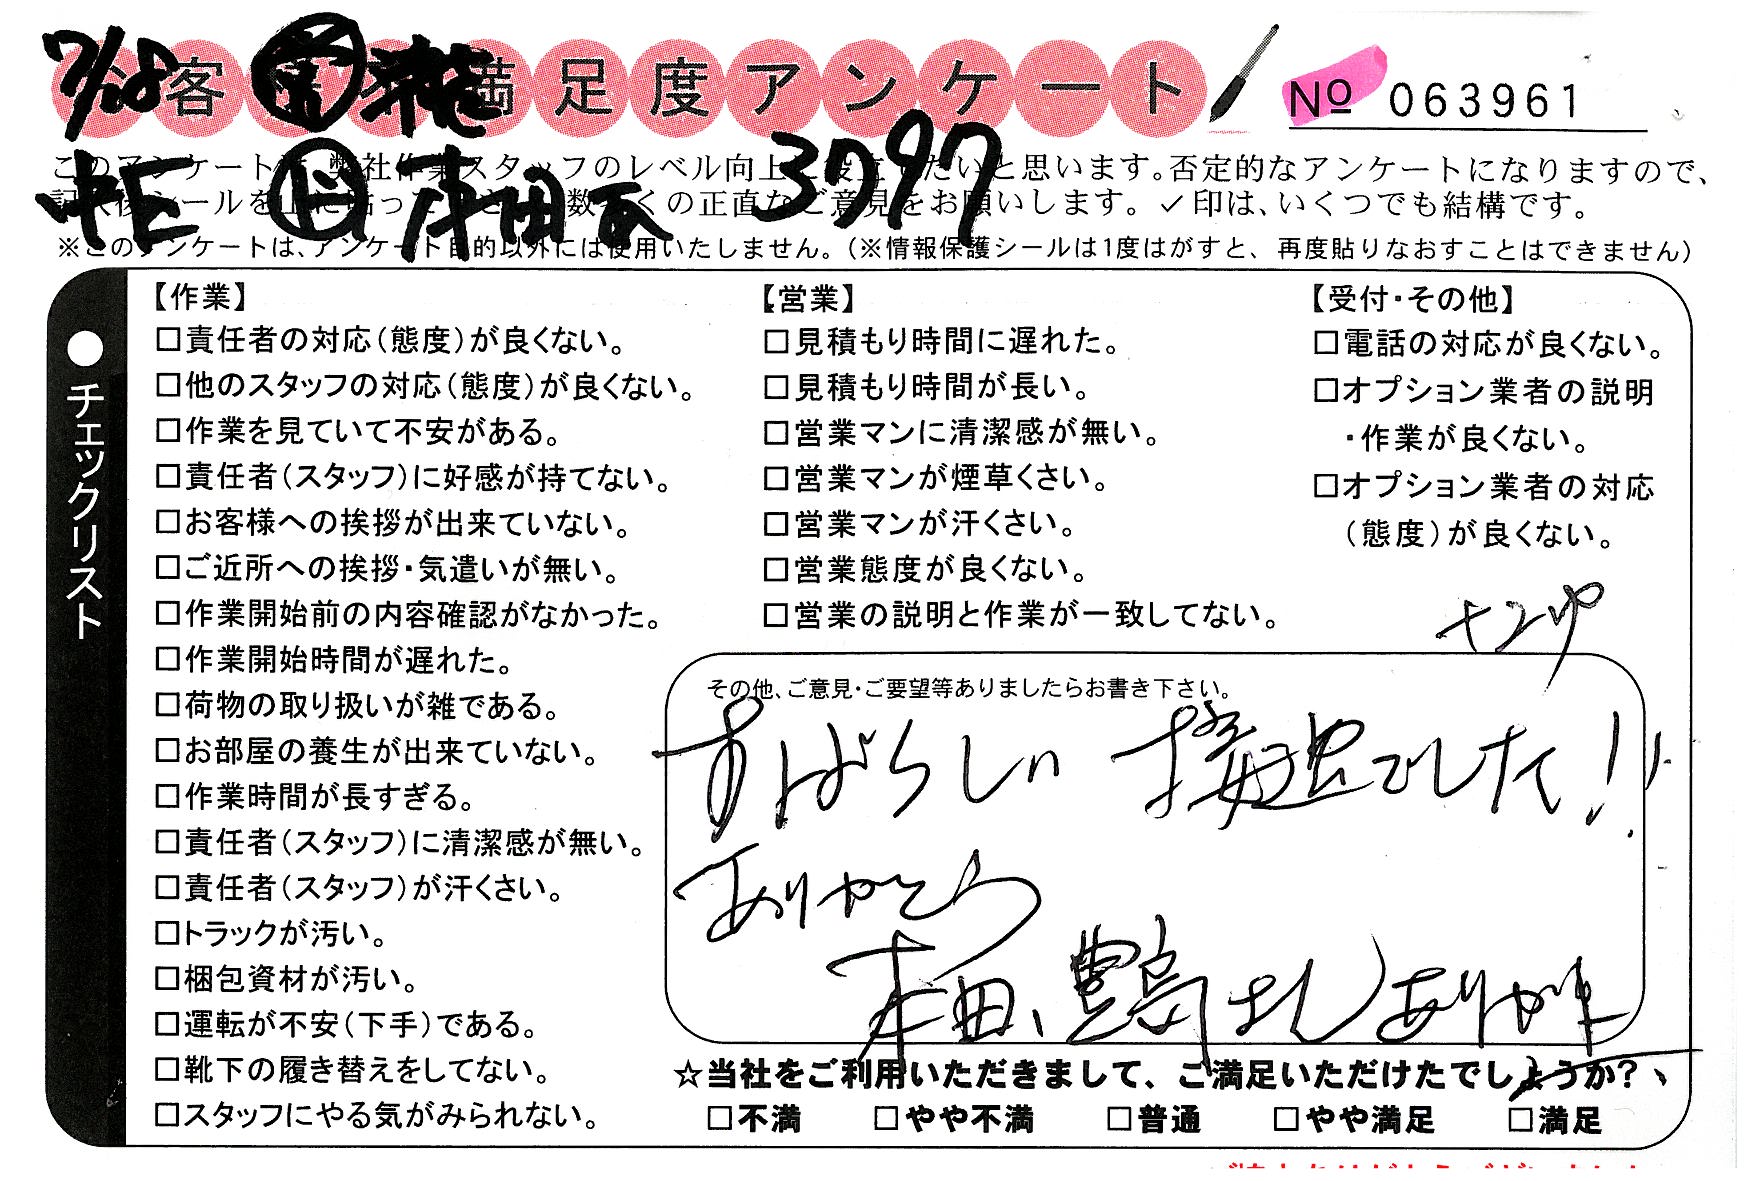 7/18
客 満足度アンケート
№ 063961
3797
このアンケート 弊社作業スタッフのレベル向上 たいと思います。否定的なアンケートになりますので、
の正直なご意見をお願いします。✓印は、いくつでも結構です。
※このアンケートは、アンケート目的以外には使用いたしません。（※情報保護シールは1度はがすと、再度貼りなおすことはできません）
●チェックリスト
【作業】
□責任者の対応（態度）が良くない。
□他のスタッフの対応（態度）が良くない。
□作業を見ていて不安がある。
□責任者（スタッフ）に好感が持てない。
□お客様への挨拶が出来ていない。
□ご近所への挨拶・気遣いが無い。
□作業開始前の内容確認がなかった。
□作業開始時間が遅れた。
□荷物の取り扱いが雑である。
□お部屋の養生が出来ていない。
□作業時間が長すぎる。
□責任者（スタッフ）に清潔感が無い。
□責任者（スタッフ）が汗くさい。
□トラックが汚い。
□梱包資材が汚い。
□運転が不安（下手）である。
□靴下の履き替えをしてない。
□スタッフにやる気がみられない。
【営業】
□見積もり時間に遅れた。
□見積もり時間が長い。
□営業マンに清潔感が無い。
□営業マンが煙草くさい。
□営業マンが汗くさい。
□営業態度が良くない。
□営業の説明と作業が一致してない。
【受付・その他】
□電話の対応が良くない。
□オプション業者の説明
・作業が良くない。
□オプション業者の対応
（態度）が良くない。
その他、ご意見・ご要望等ありましたらお書き下さい。
すばらしい 接遇でした！！
ありがとう
本田、 さんありがと
☆当社をご利用いただきまして、ご満足いただけたでしょうか？
□不満 □やや不満 □普通 □やや満足 □満足